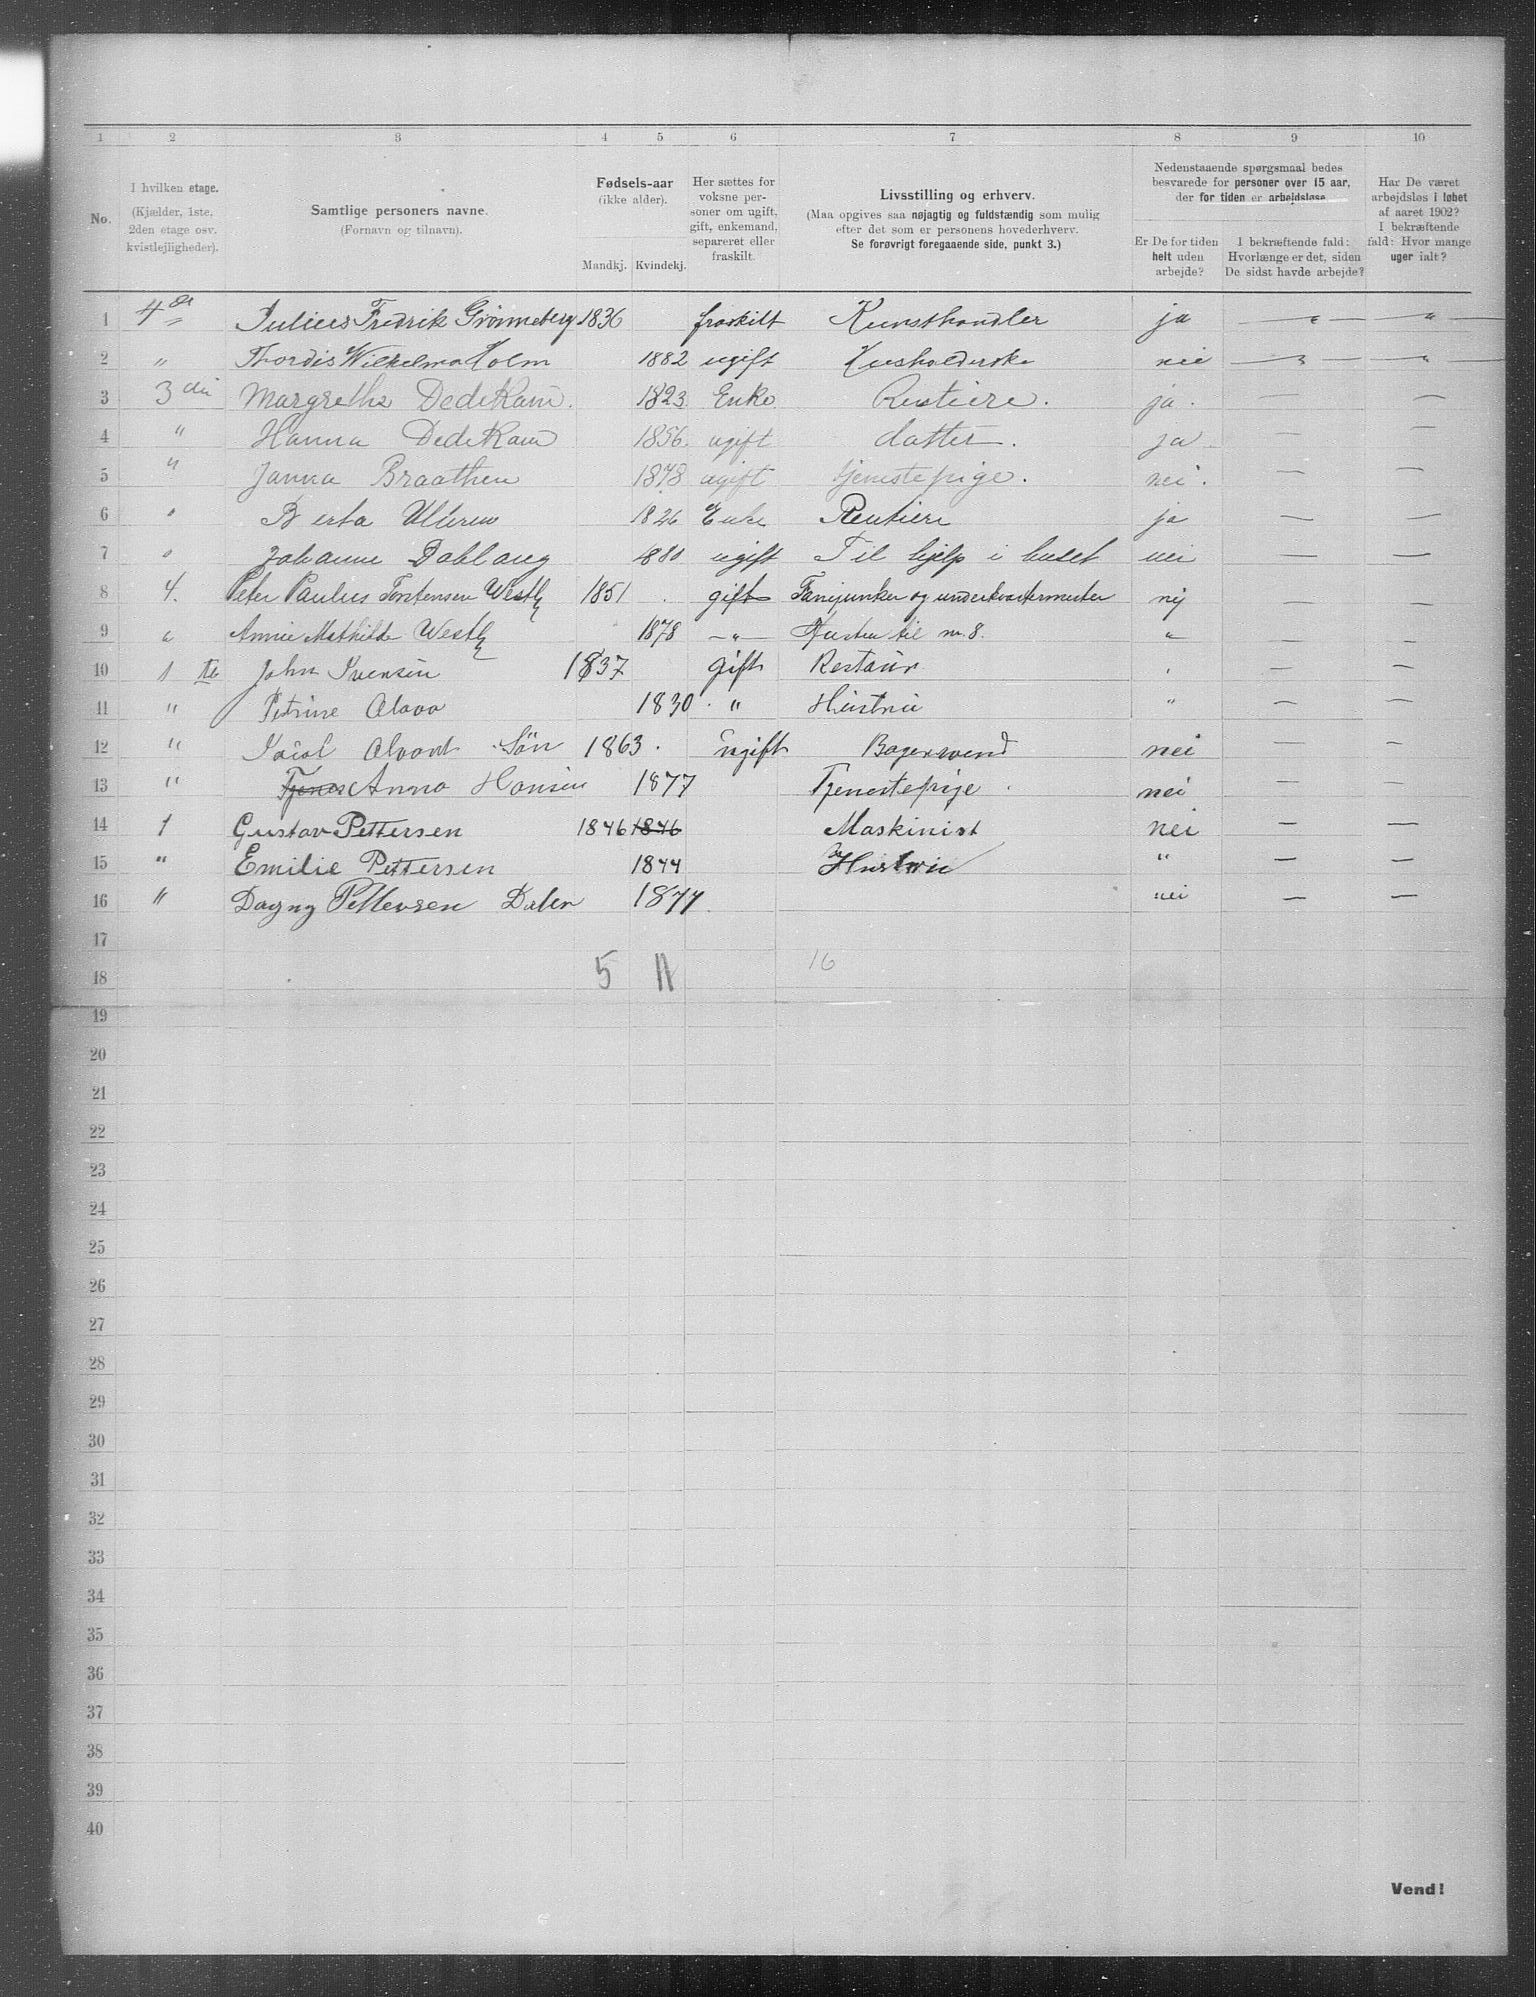 1 2 3 4 5 6 7 8 9 10
No.
I hvilken etage.
(Kjælder, 1ste,
2den etage osv.
kvistlejligheder).
Samtlige personers navne.
(Fornavn og tilnavn).
Fødsels-aar
(ikke alder).
Mandkj. Kvindekj.
Her sættes for
voksne per-
soner om ugift,
gift, enkemand,
separeret eller
fraskilt.
Livsstilling og erhverv.
(Maa opgives saa nøjagtig og fuldstændig som mulig
efter det som er personens hovederhverv.
Se forøvrigt foregaaende side, punkt 3.)
Nedenstaaende spørgsmaal bedes
besvarede for personer over 15 aar,
der for tiden er arbejdsløse.
Er De for tiden
helt uden
arbejde?
I bekræftende fald:
Hvorlænge er det, siden
De sidst havde arbejde?
Har De været
arbejdsløs i løbet
af aaret 1902?
I bekræftende
fald: Hvor mange
uger ialt?
1 4de Julius Fredrik Grönneberg 1836 fraskilt Kunsthandler ja — " — — " —
2 " Thordis Wilhelma Holm 1882 ugift Husholderske nei — " — — " —
3 3die Margrethe Dedekam. 1823 Enke Rentiere. ja. — —
4 " Hanna Dedekam 1856 ugift datter. ja — —
5 " Janna Braathen 1878 ugift tjenestepige. nei. — —
6 " Berta Ulleren 1826 Enke Rentiere ja — —
7 " Johanne Dahlaug 1880 ugift Til hjelp i huset nei — —
8 4. Peter Paulus Torstensen Westly 1851 gift Fanejunker og underkvartermester nej — —
9 " Annie Mathilde Westly 1878 — " — Hustru til nr. 8. " — —
10 1 ste John Svensen 1837 gift Restaur " — —
11 " Petrine 1830 " Hustru " — —
12 " Søn 1863 ugift Bagersvend nei — —
13 " Anna Hansen 1877 Tjenestepige nei — —
14 1 Gustav Pettersen 1846 1846 Maskinist nei — —
15 " Emilie Pettersen 1844 Hustru " — —
16 " Dagny Pettersen Dater 1877 nei — —
17
5 11 16
18
19
20
21
22
23
24
25
26
27
28
29
30
31
32
33
34
35
36
37
38
39
40
Vend!